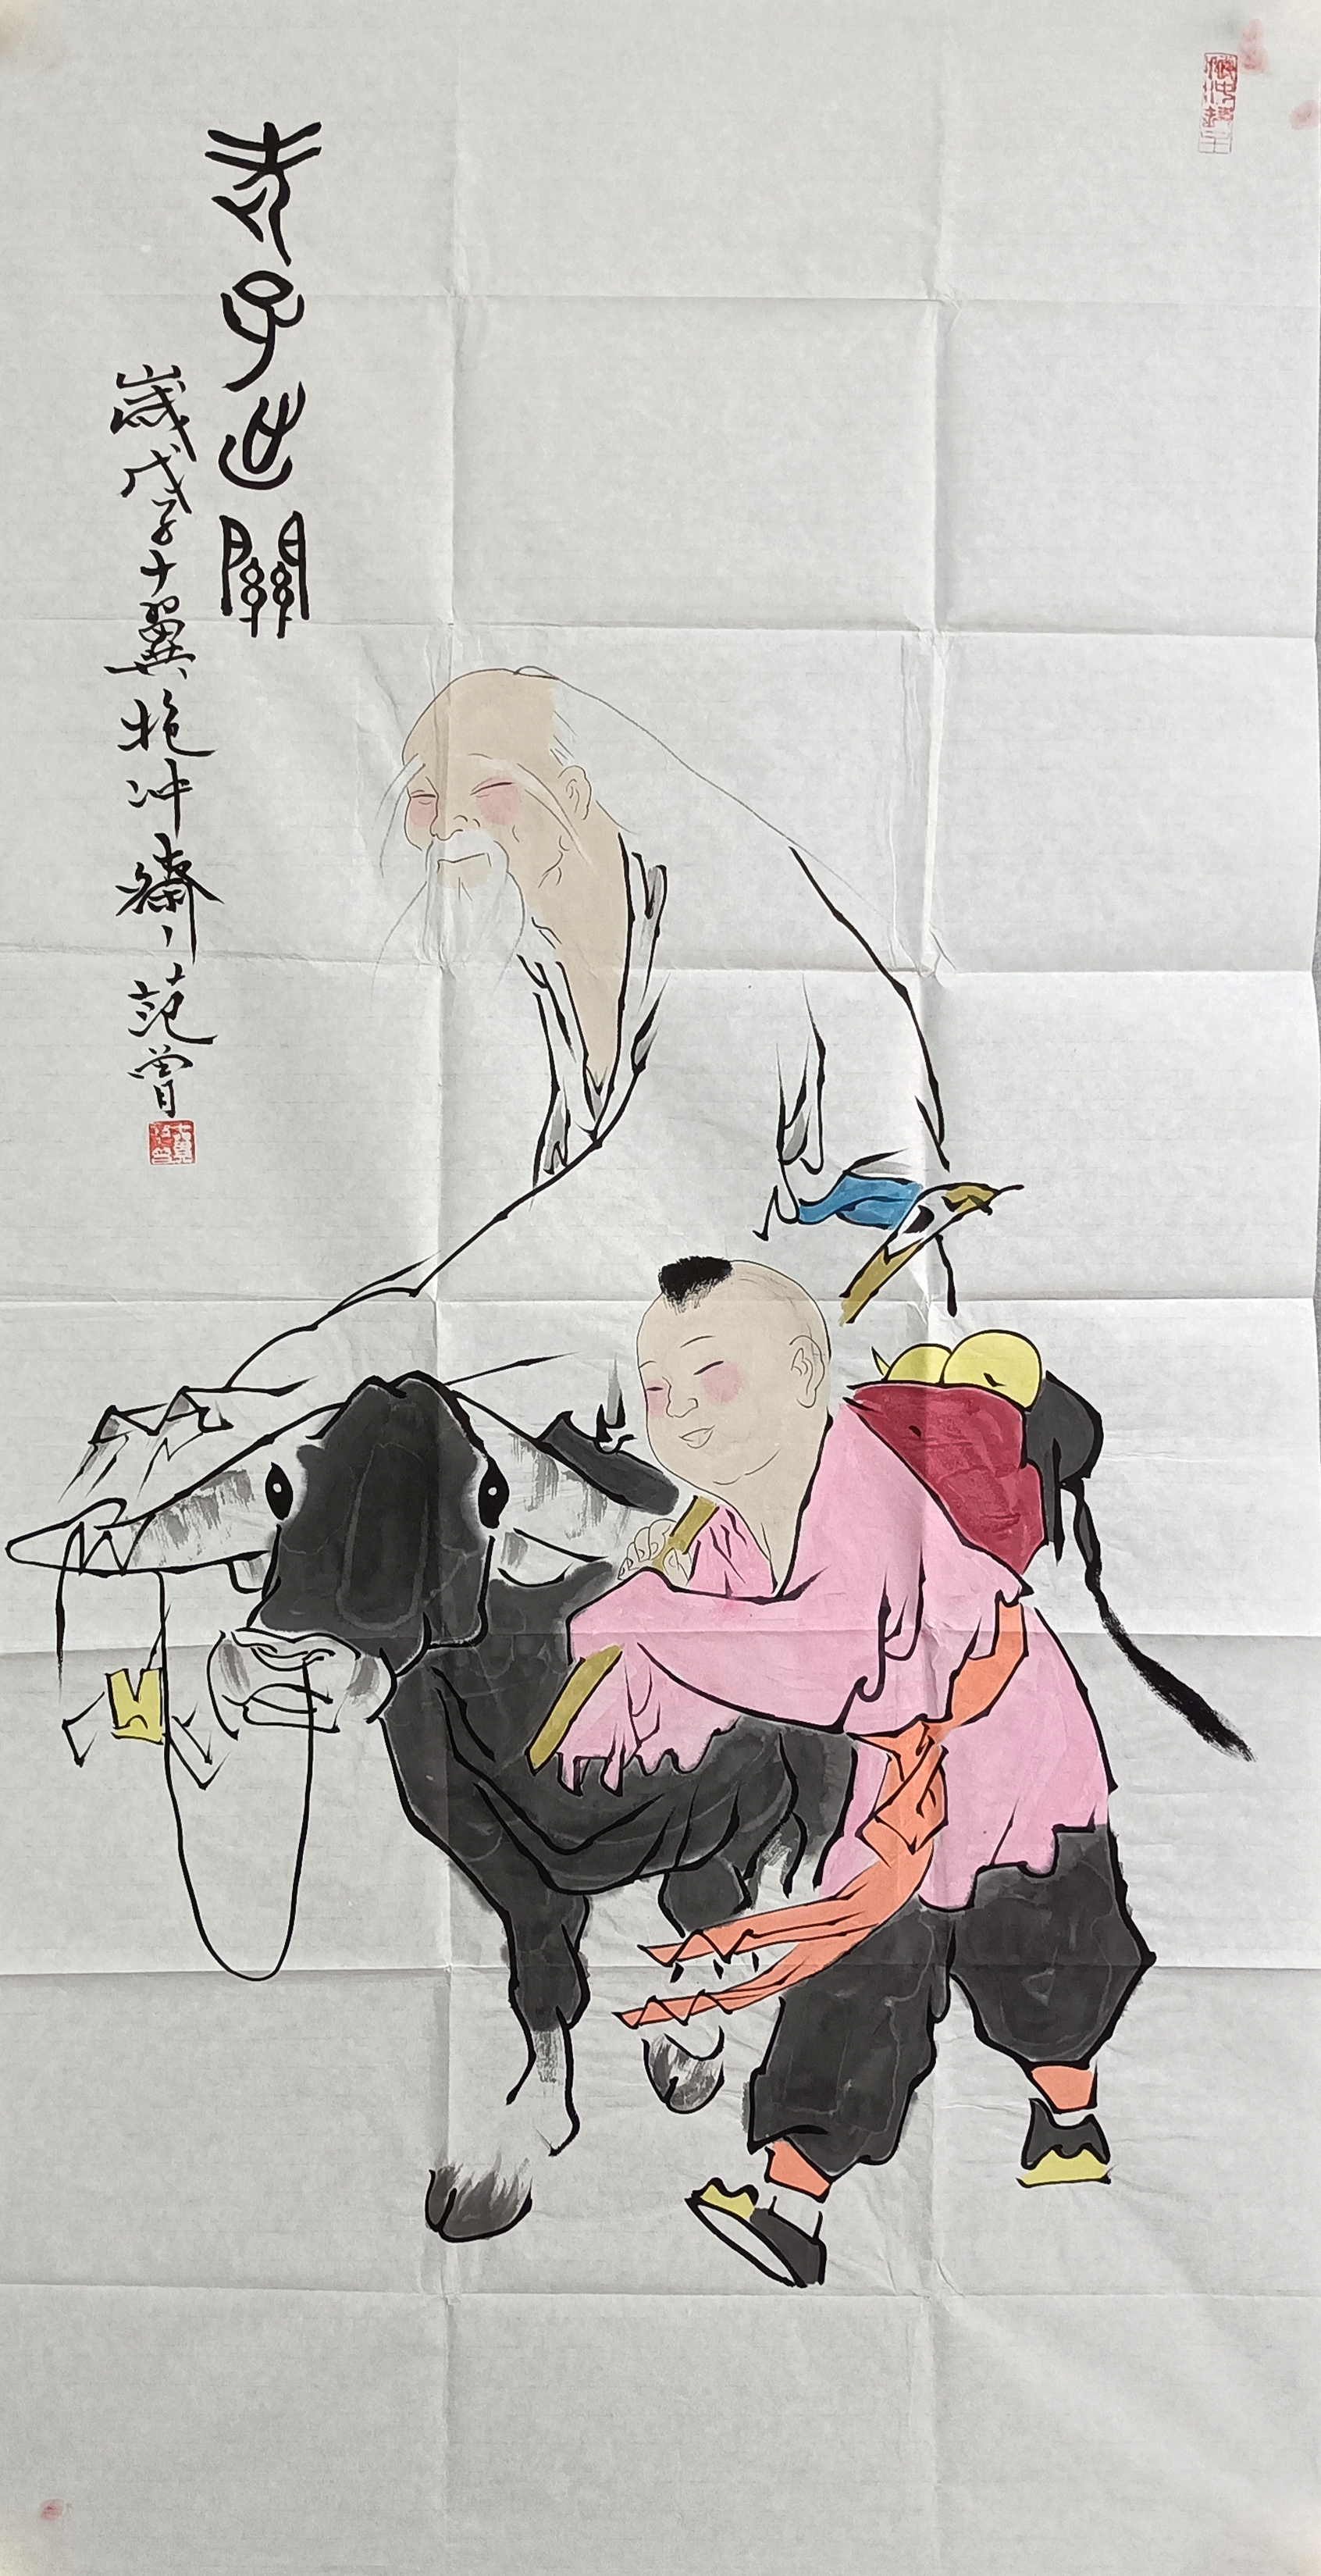 老子出關
歲戊子十翼抱冲齋丶范曾